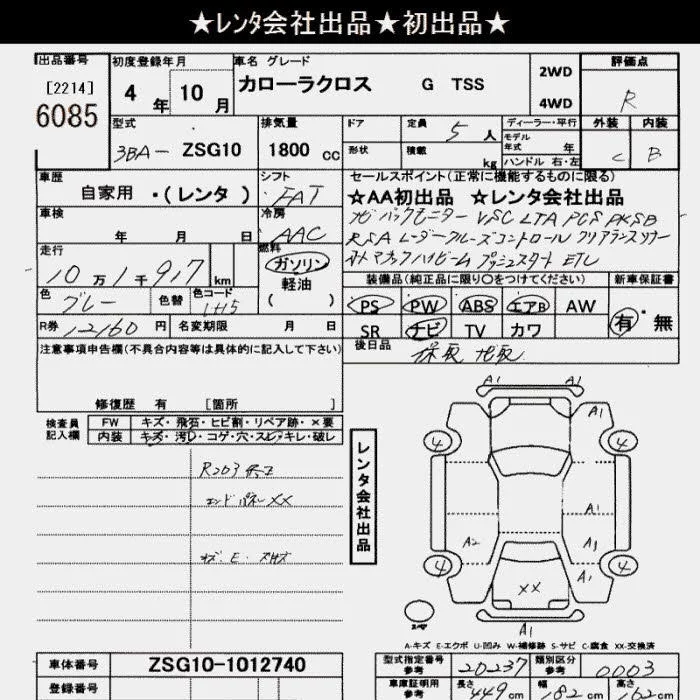 ★レンタ会社出品★初出品★
出品番号 初度登録年月 車名 グレード 2WD 評価点
[2214] 4年 10月 カローラクロス G TSS 4WD R
6085
型式 排気量 ドア 定員 5人 ディーラー・平行 外装 内装
モデル年式 年
3BA- ZSG10 1800cc 形状 積載 kg ハンドル 右・左 C B
車歴 シフト セールスポイント(正常に機能するものに限る)
自家用・(レンタ) FAT ★AA初出品 ★レンタ会社出品
車検 年 月 日 冷房 AAC ナビ バックモニター VSC LTA PCS PKSB
RSA レーダークルーズコントロール クリアランスソナー
オートマチックハイビーム プッシュスタート ETC
走行 10万1千917km 燃料 ガソリン 軽油 ( )
装備品(純正品に限り○をつけてください) 新車保証書
色 グレー 色替 色コード 1H5 PS PW ABS エアB AW 有・無
R券 12160円 名変期限 月 日 SR ナビ TV カワ
後日品 保取 ナビ取
注意事項申告欄(不具合内容等は具体的に記入して下さい)
修復歴 有 [箇所 ]
検査員記入欄 FW キズ・飛石・ヒビ割・リペア跡・×要
内装 キズ・汚レ・コゲ・穴・スレ・キレ・破レ
R203
エンドパネルXX
レンタ会社出品
A1 A1
A1
4 4
A1
A2 A1
4 A1 4
XX
スペア A1
A-キズ E-エクボ U-凹み W-補修跡 S-サビ C-腐食 XX-交換済
車体番号 ZSG10-1012740 型式指定番号 参考 20237 類別区分 参考 0003
登録番号 車庫証明用 参考 長さ 449cm 幅 182cm 高さ 162cm